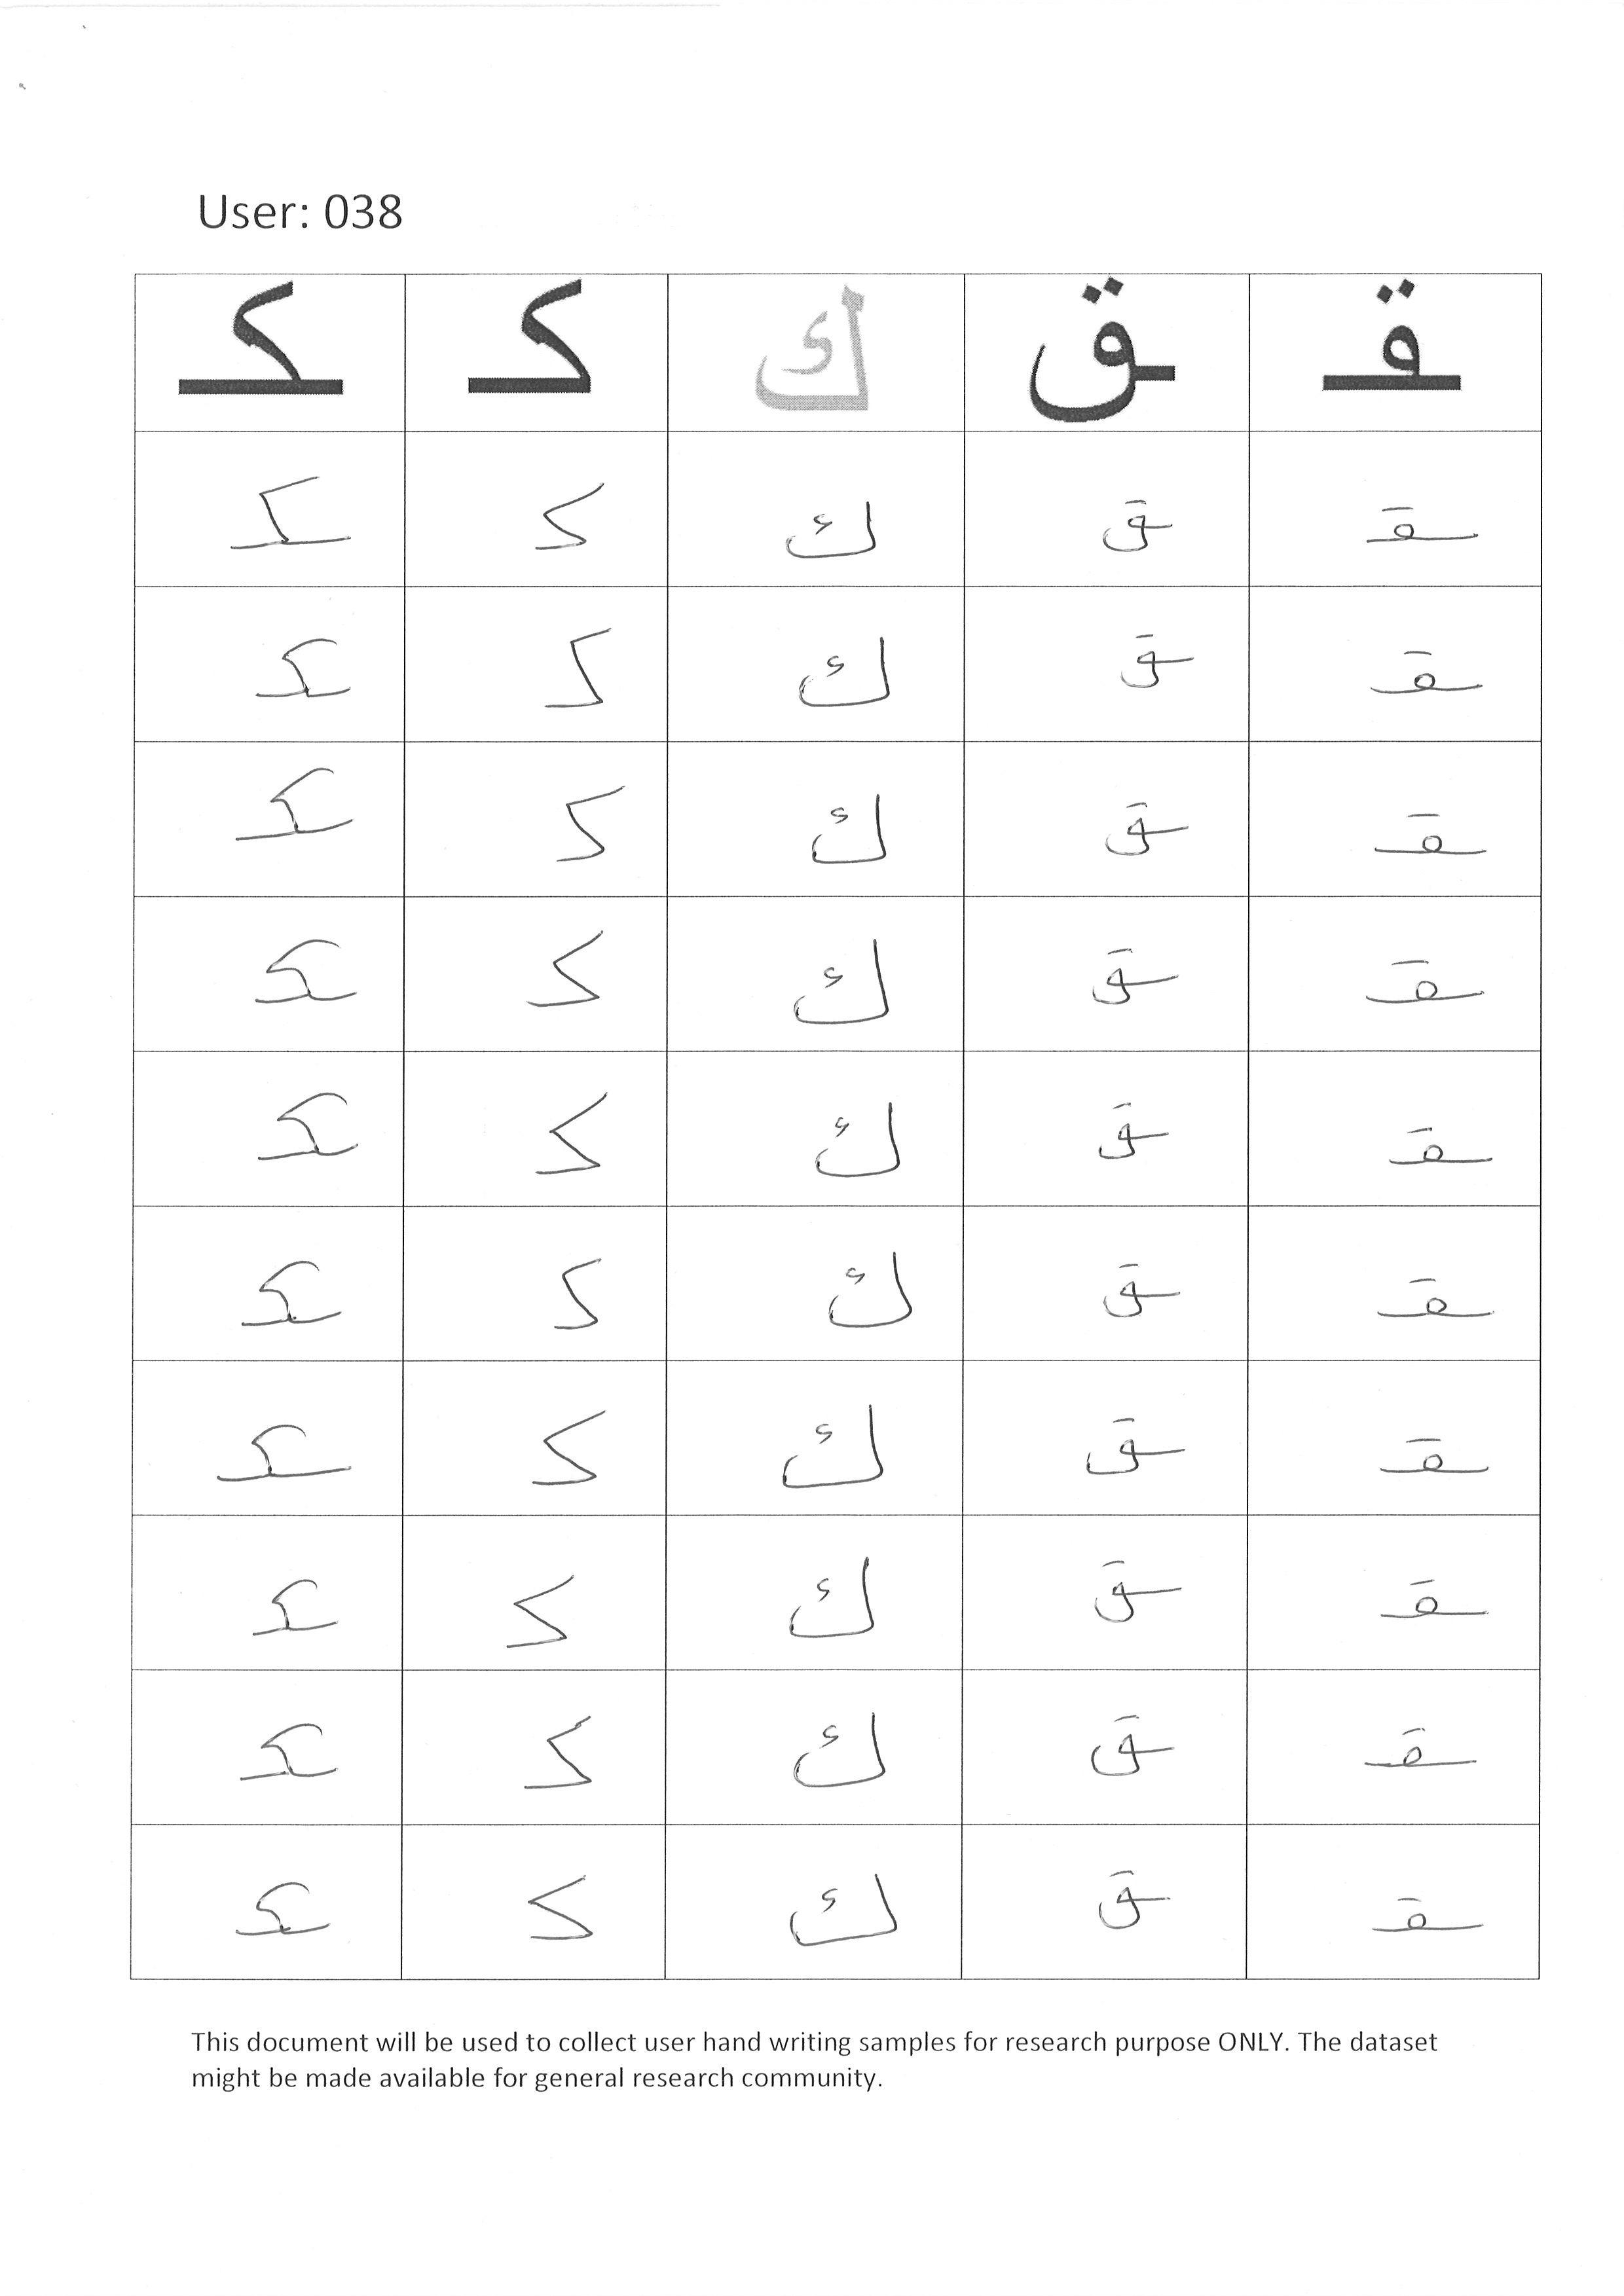 User: 038
ـقـ ـق ك كـ ـكـ
ـقـ ـق ك كـ ـكـ
ـقـ ـق ك كـ ـكـ
ـقـ ـق ك كـ ـكـ
ـقـ ـق ك كـ ـكـ
ـقـ ـق ك كـ ـكـ
ـقـ ـق ك كـ ـكـ
ـقـ ـق ك كـ ـكـ
ـقـ ـق ك كـ ـكـ
ـقـ ـق ك كـ ـكـ
ـقـ ـق ك كـ ـكـ
This document will be used to collect user hand writing samples for research purpose ONLY. The dataset
might be made available for general research community.